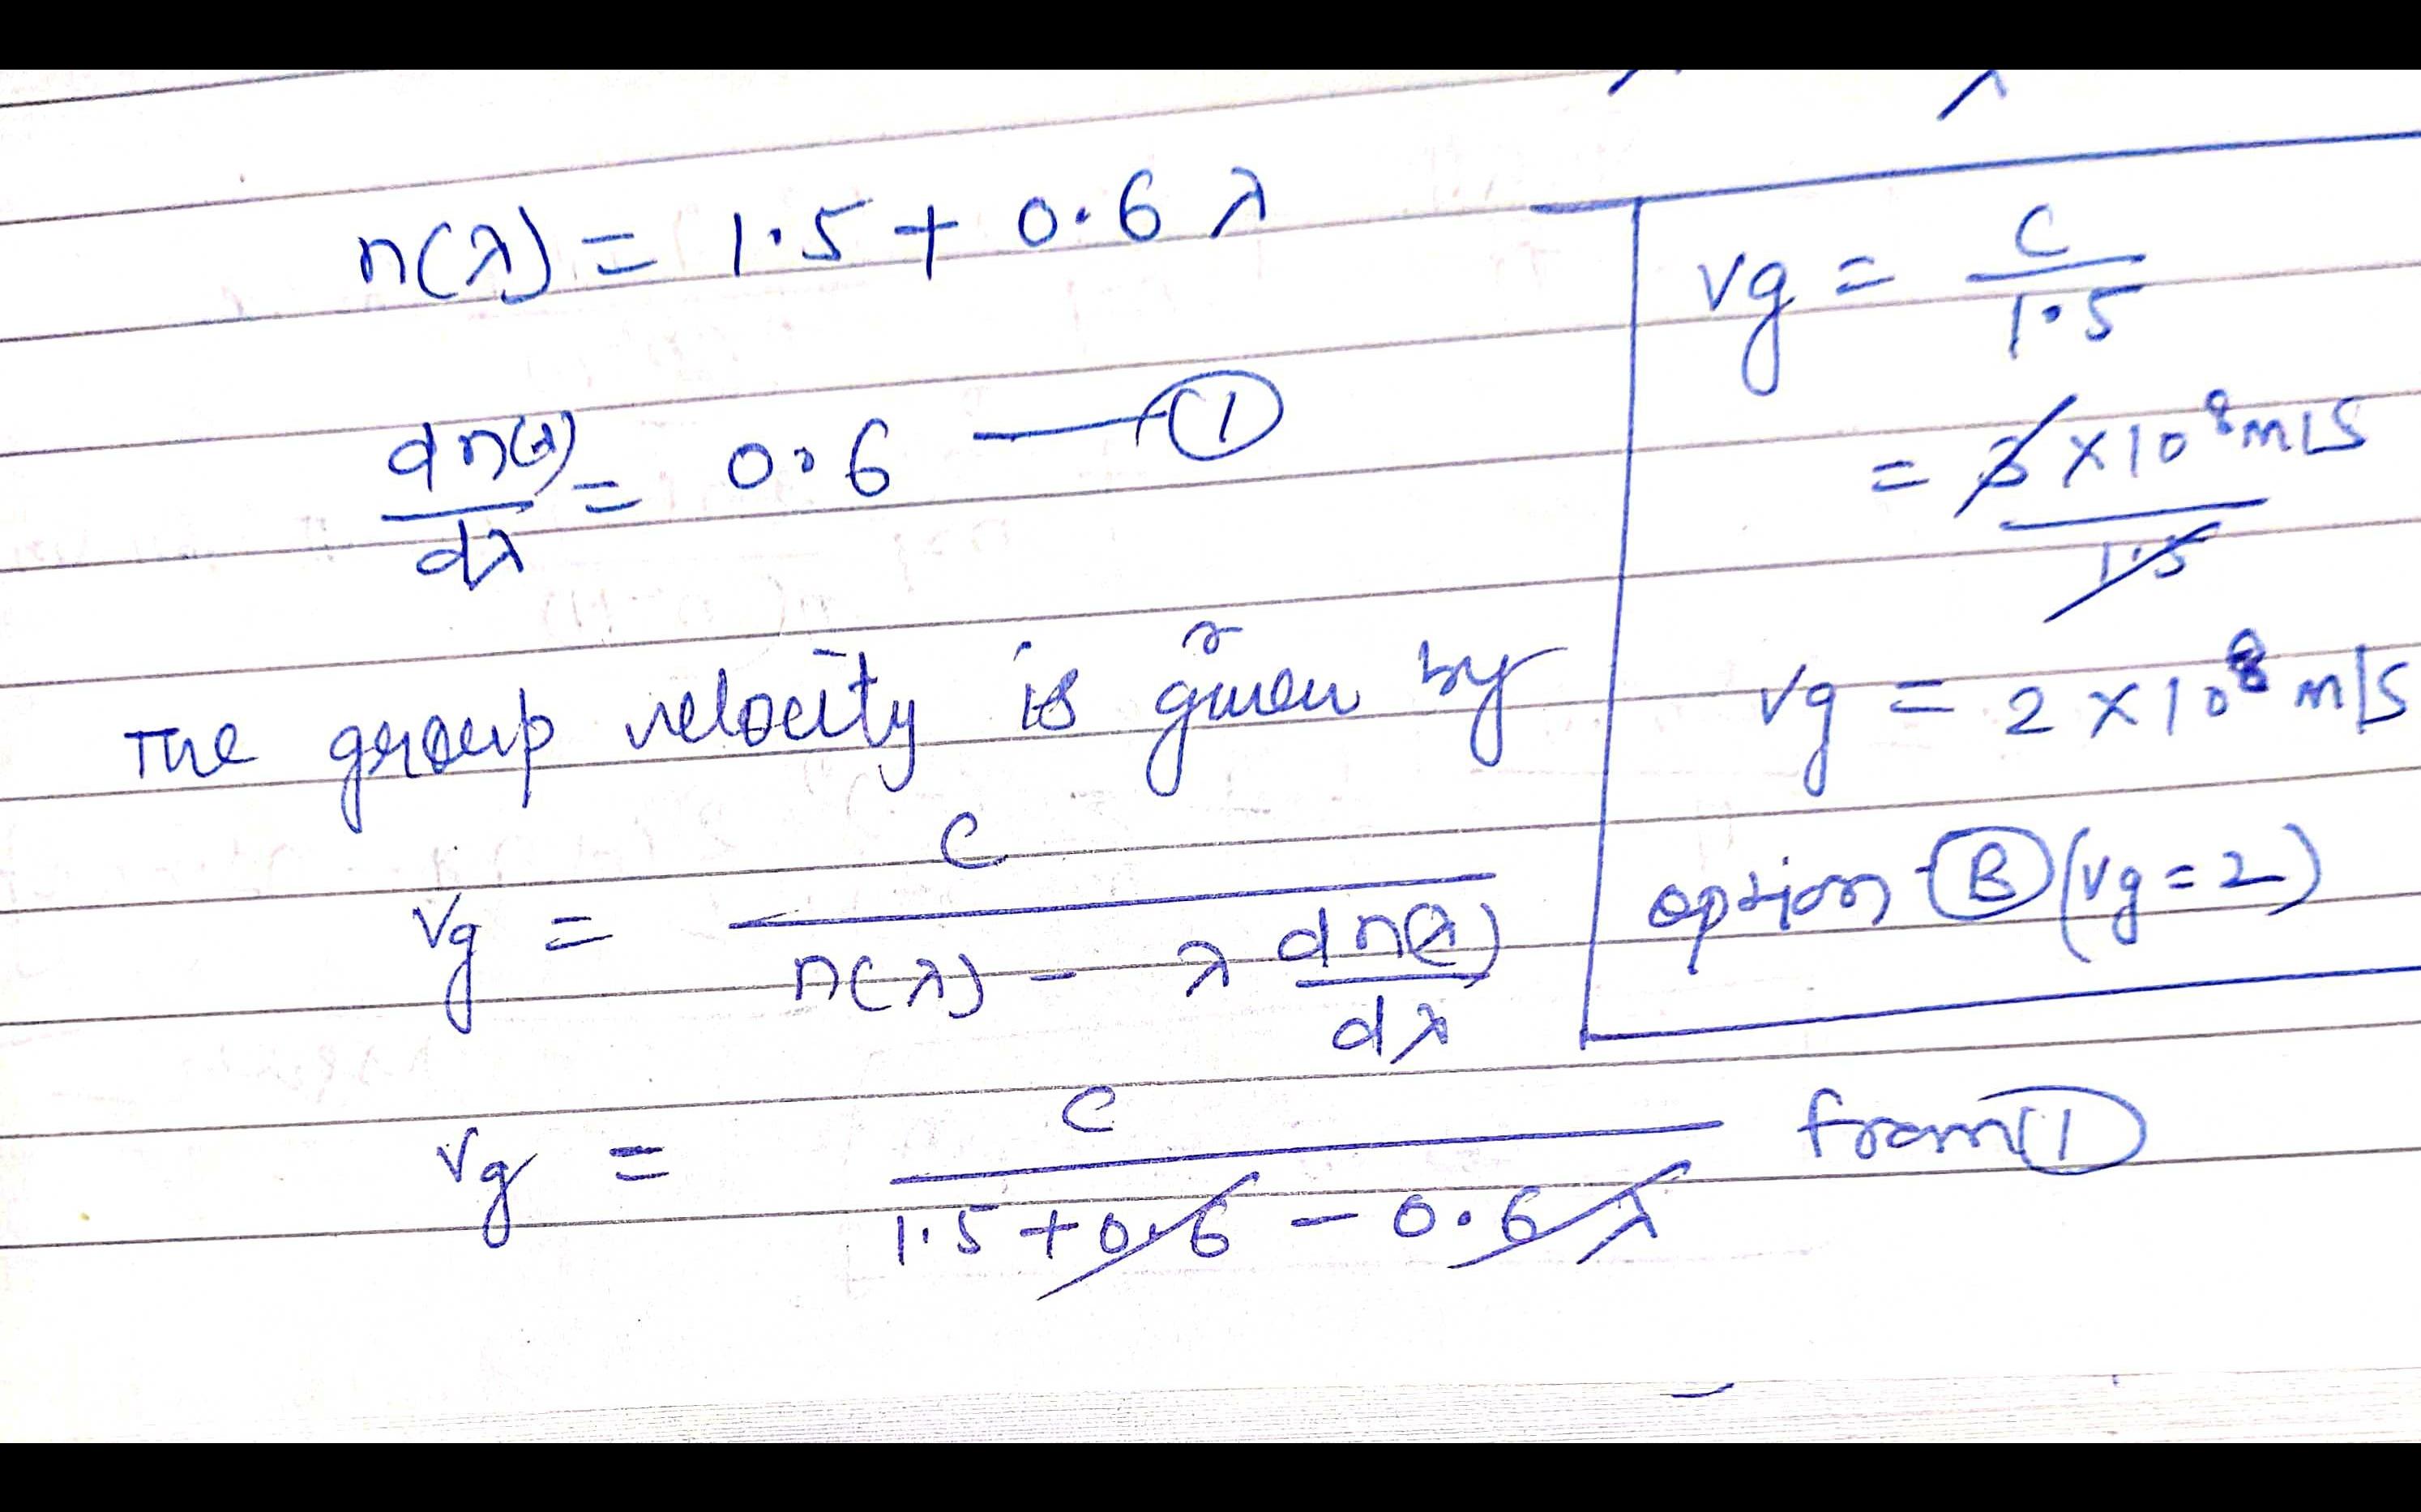 n(λ) = 1.5 + 0.6 λ
dn(λ)/dλ = 0.6 — ①
The group velocity is given by
vg = c / (n(λ) - λ dn(λ)/dλ)
vg = c / (1.5 + 0.6 - 0.6 λ) from ①
vg = c / 1.5
= 3 × 10⁸ m/s / 1.5
vg = 2 × 10⁸ m/s
option B (vg = 2)